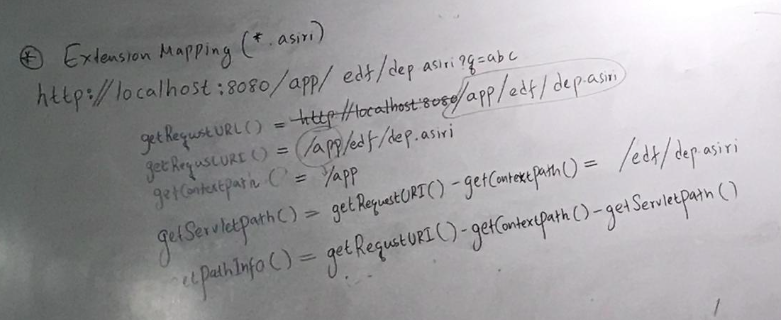 * Extension Mapping (*.asiri)
http://localhost:8080/app/edf/dep asiri?q=abc
getRequstURL() = http://localhost 8080/app/edf/dep.asiri
getRequstURI() = /app/edf/dep.asiri
getContextpath() = /app
getServletpath() = getRequestURI() - getContextpath() = /edf/dep.asiri
etpathInfo() = getRequstURI() - getContextpath() - getServletpath()